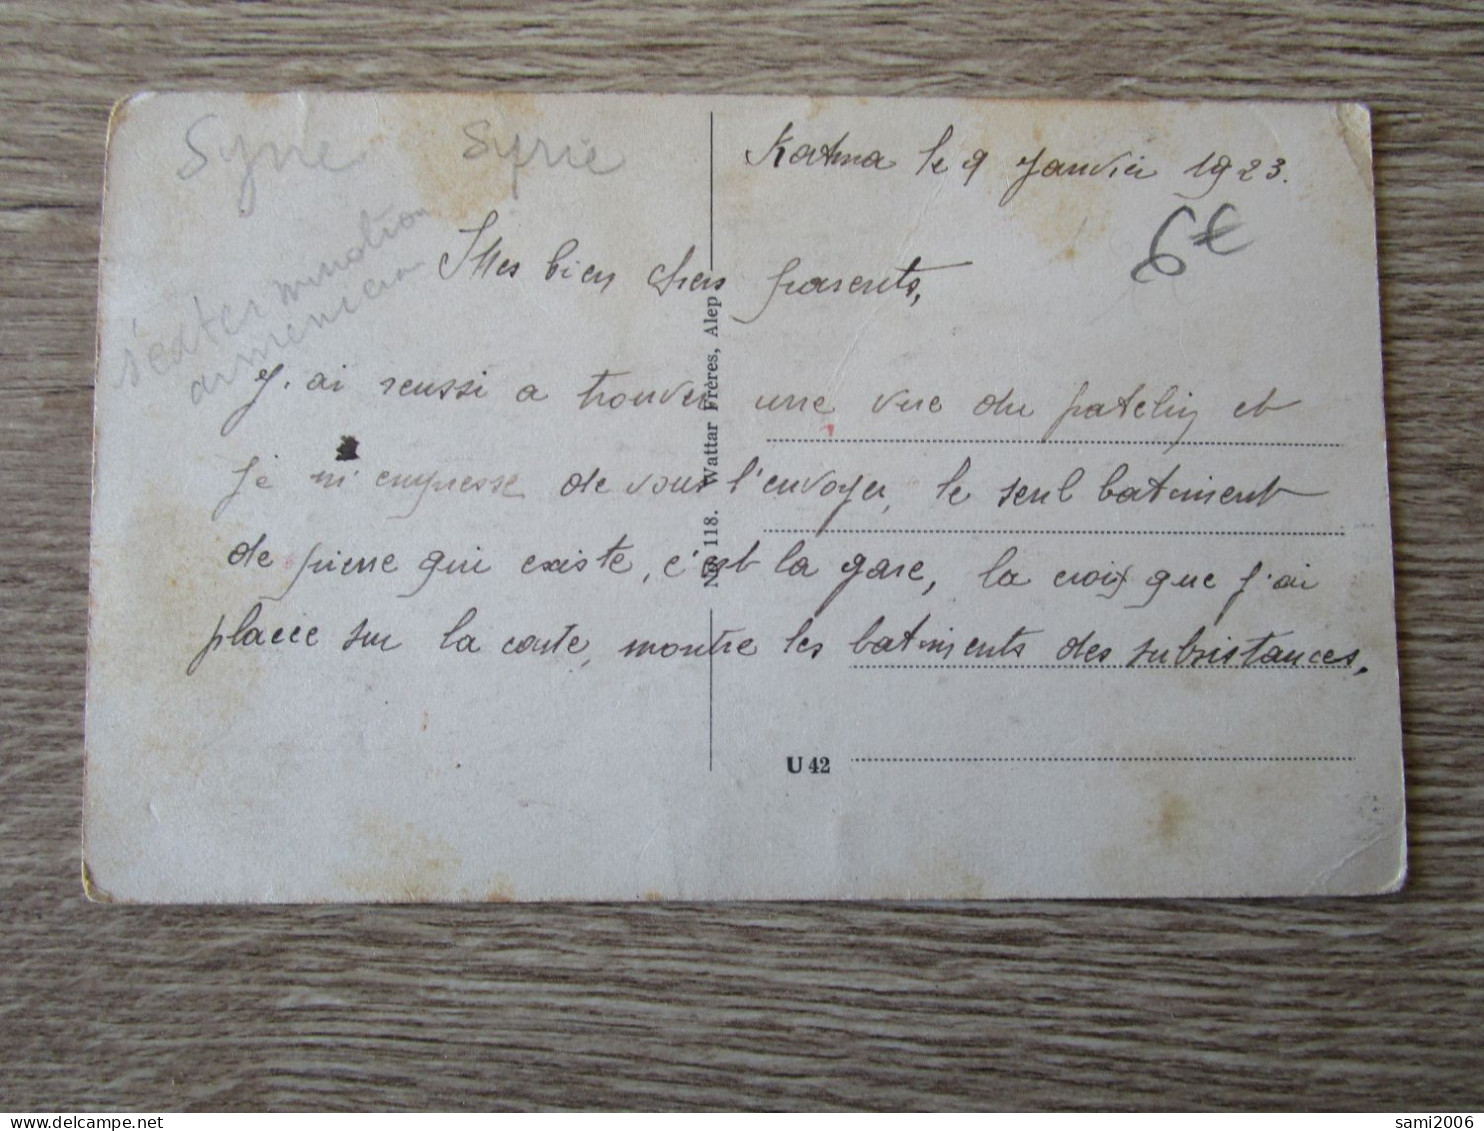 Syrie Syrie
Katma le 9 Janvier 1923.
6€
extermination
armenienne
Mes bien chers parents,
J. ai reussi a trouver une vue du patelin et
je m'empresse de vous l'envoyer, le seul batiment
de pierre qui existe, c'est la gare, la croix que j'ai
placée sur la carte, montre les batiments des subsistances.
No 118. Wattar Frères, Alep
U 42
sami2006
delcampe.net